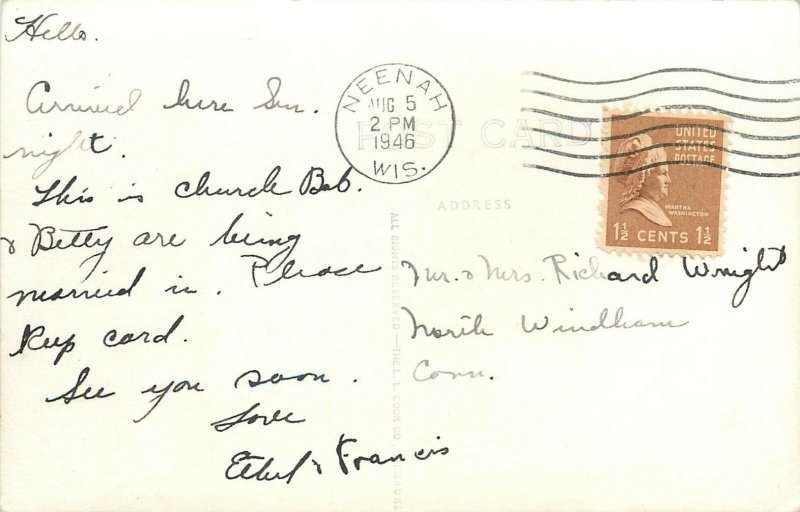 Hello.
Arrived here Sun.
night.
This is church Bob.
& Betty are being
married in. Please
Keep card.
See you soon.
Love
Ethel & Francis
NEENAH
AUG 5
2 PM
1946
WIS.
POST CARD
ADDRESS
UNITED
STATES
POSTAGE
MARTHA
WASHINGTON
1½ CENTS 1½
Mr. & Mrs. Richard Wright
North Windham
Conn.
ALL RIGHTS RESERVED—THE L. L. COOK CO.